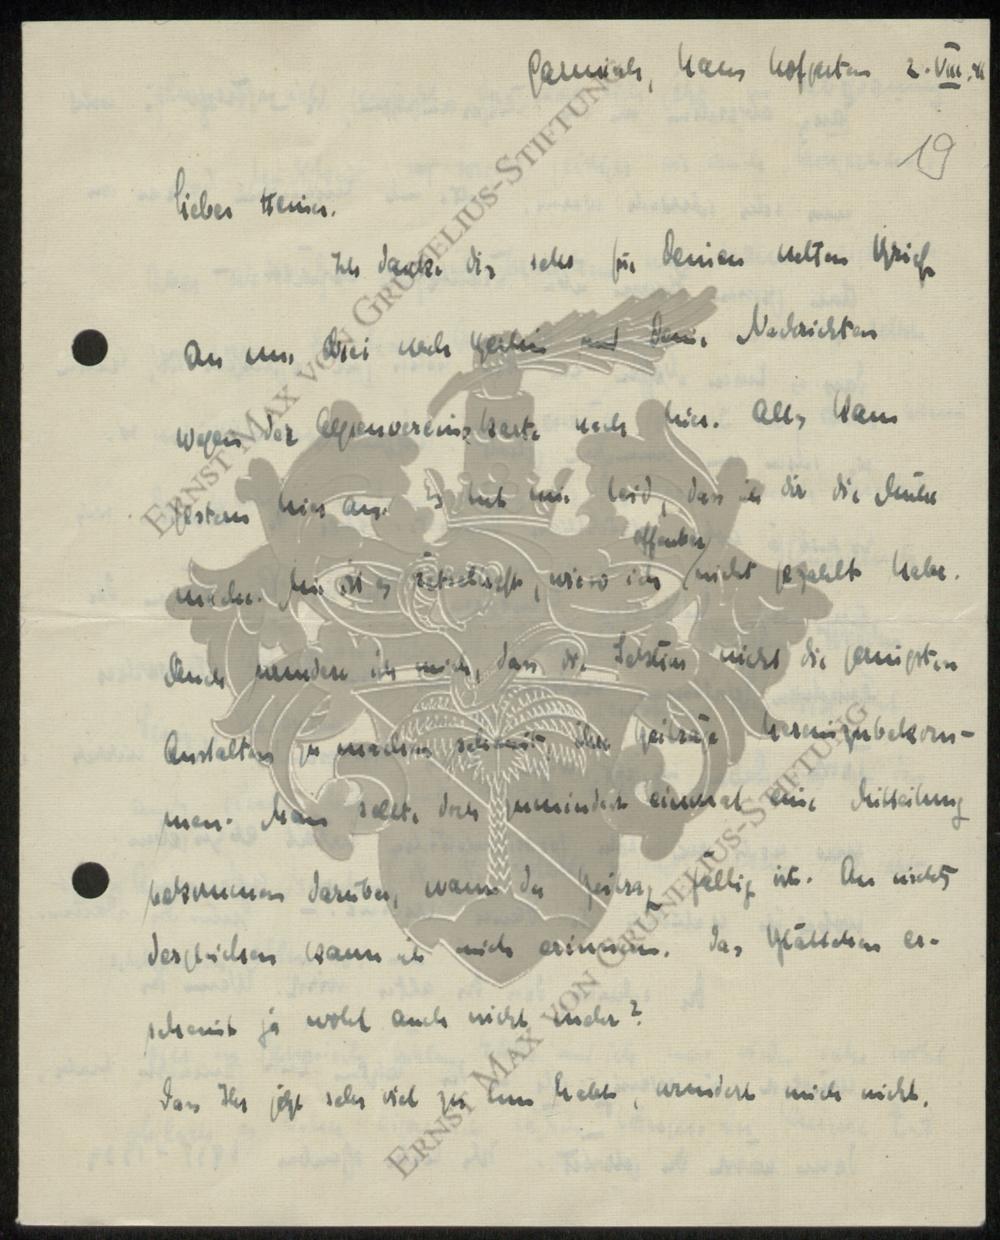 Garmisch, Haus Hofgarten 2.VIII.41
19
Lieber Heiner.
Ich danke dir sehr für Deinen netten Brief
an uns drei nach Berlin und Deine Nachrichten
wegen der Alpenvereinskarte nach hier. Alles kam
gestern hier an. Es tut mir leid, dass ich dir die Mühe
offenbar
mache. Mir ist es rätselhaft, wieso ich nicht gezahlt habe.
Auch wundere ich mich, dass die Sektion nicht die geringsten
Anstalten zu machen scheint, ihre Beiträge hereinzubekom-
men. Man sollte doch zumindest einmal eine Mitteilung
bekommen darüber, wann der Beitrag fällig ist. An nichts
dergleichen kann ich mich erinnern. Das Blättchen er-
scheint ja wohl auch nicht mehr?
Dass Ihr jetzt sehr viel zu tun habt, wundert mich nicht.
ERNST MAX VON GRUNELIUS-STIFTUNG
ERNST MAX VON GRUNELIUS-STIFTUNG